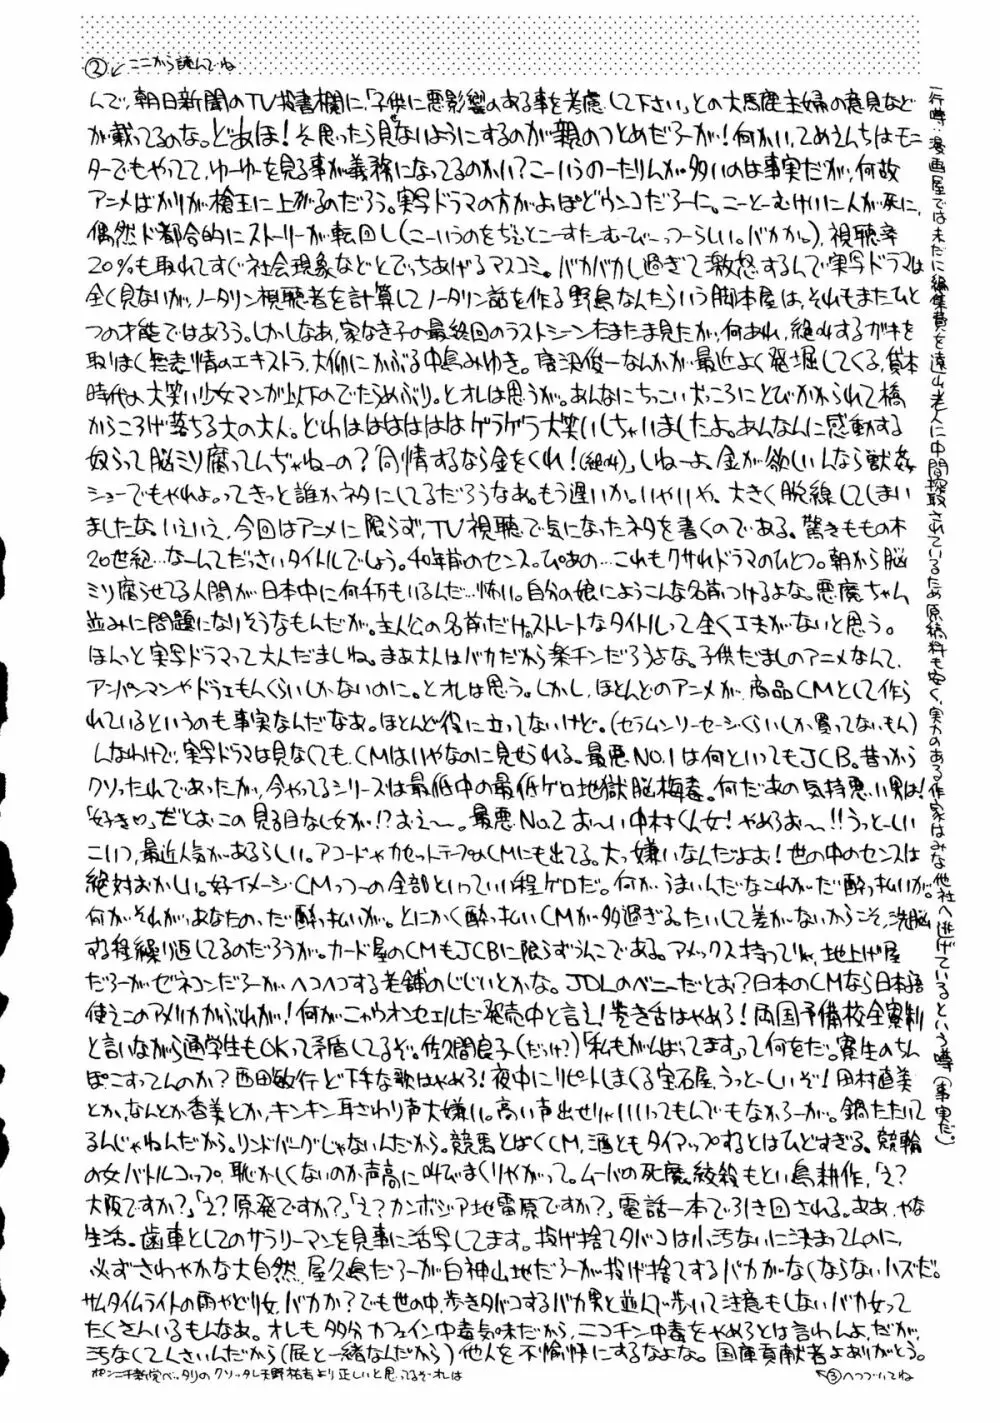 ② ↙ ここから読んでね
んで、朝日新聞のTV投書欄に、「子供に悪影響のある事を考慮して下さい」との大馬鹿主婦の意見など
が載ってるのな。どあほ!そう思ったら見せないようにするのが親のつとめだろーが!何かい、てめえんちはモニ
ターでもやってて、ゆーゆーを見る事が義務になってるのかい?こーいうのーたりんが多いのは事実だが、何故
アニメばかりが槍玉に上がるのだろう。実写ドラマの方がよっぽどウンコだろーに。こーとーむけいに人が死に、
偶然ド都合的にストーリーが転回し(こーいうのをぢぇとこーすたーむーびーっつーらしい。バカか。)、視聴率
20%も取れてすぐ社会現象などとでっちあげるマスコミ。バカバカし過ぎて激怒するんで実写ドラマは
全く見ないが、ノータリン視聴者を計算してノータリン話を作る野島なんたらいう脚本屋は、それもまたひと
つの才能ではあろう。しかしなあ、家なき子の最終回のラストシーンたまたま見たが、何あれ、絶叫するガキを
取りまく無表情のエキストラ、大仰にかぶる中島みゆき。唐沢俊一なんかが最近よく発掘してくる、貸本
時代の大笑い少女マンガ以下のでたらめぶり。とオレは思うが。あんなにちっこい犬っころにとびかかられて橋
からころげ落ちる大の大人。どわはははははゲラゲラ大笑いしちゃいましたよ。あんなんに感動する
奴らって脳ミソ腐ってんぢゃねーの?「同情するなら金をくれ!(絶叫)」しねーよ。金が欲しいんなら獣姦
ショーでもやれよ。ってきっと誰かネタにしてるだろうなあ。もう遅いか。いやいや、大きく脱線してしまい
ましたな。いえいえ、今回はアニメに限らず、TV視聴で気になったネタを書くのである。驚きももの木
20世紀…なーんてだっさいタイトルでしょう。40年前のセンス。ぴあの…これもクサれドラマのひとつ。朝から脳
ミソ腐らせてる人間が日本中に何千万もいるんだ…怖い。自分の娘にようこんな名前つけるよな。悪魔ちゃん
並みに問題になりそうなもんだが。主人公の名前だけのストレートなタイトルって全く工夫がないと思う。
ほんっと実写ドラマって大人だましね。まあ大人はバカだから楽チンだろうよな。子供だましのアニメなんて、
アンパンマンやドラえもんくらいしかないのに。とオレは思う。しかし、ほとんどのアニメが、商品CMとして作ら
れているというのも事実なんだなあ。ほとんど役に立ってないけど。(セラムンソーセージくらいしか買ってないもん)
しなわけで、実写ドラマは見なくても、CMはいやなのに見せられる。最悪NO.1は何といってもJCB。昔っから
クソったれであったが、今やってるシリーズは最低中の最低ゲロ地獄脳梅毒。何だあの気持悪い男は!
「好き♡」だとお、この見る目なし女が!?おえ〜。最悪No.2お〜い中村くん女!やめろお〜!!うっとーしい
こいつ、最近人気があるらしい。アコードやカセットテープのCMにも出てる。大っ嫌いなんだよお!世の中のセンスは
絶対おかしい。好イメージCMっつーの全部といっていい程ゲロだ。何がうまいんだなこれがだ酔っ払いが。
何がそれが、あなたの、だ酔っ払いが。とにかく酔っ払いCMが多過ぎる。たいして差がないからこそ、洗脳
する程繰り返してるのだろうが。カード屋のCMもJCBに限らずうんこである。アメックス持ってりゃ、地上げ屋
だろーがゼネコンだろーがヘコヘコする老舗のじじいとかな。JDLのベニーだとお?日本のCMなら日本語
使えこのアメリカかぶれが!何がニャウオンセェルだ発売中と言え!巻き舌はやめろ!両国予備校全寮制
と言いながら通学生もOKって矛盾してるぞ。佐久間良子(だっけ?)「私もがんばってます」って何をだ。寮生のちん
ぽこすってんのか?西田敏行ど下手な歌はやめろ!夜中にリピートしまくる宝石屋、うっとーしいぞ!田村直美
とか、なんとか香美とか、キンキン耳ざわり声大嫌い。高い声出せりゃいいってもんでもなかろーが。鍋たたいて
るんじゃねんだから。リンドバーグじゃないんだから。競馬とばくCM、酒ともタイアップするとはひどすぎる。競輪
の女バトルコップ。恥かしくないのか声高に叫びまくりやがって。ムードの死魔絞殺もとい島耕作、「え?
大阪ですか?」、「え?原発ですか?」「え?カンボジア地雷原ですか?」電話一本で引き回される。ああ、やな
生活。歯車としてのサラリーマンを見事に活写してます。投げ捨てタバコは小汚ないに決まってんのに、
必ずさわやかな大自然。屋久島だろーが白神山地だろーが投げ捨てするバカがなくならないハズだ。
サムタイムライトの雨やどり女、バカか?でも世の中、歩きタバコするバカ男と並んで歩いて注意もしないバカ女って
たくさんいるもんなあ。オレも多分カフェイン中毒気味だから、ニコチン中毒をやめろとは言わんよ。だが、
汚なくてくさいんだから(屁と一緒なんだから)他人を不愉快にするなよな。国庫貢献者よありがとう。
ポンニチ新党ベッタリのクソッタレ天野祐吉より正しいと思ってるぞオレは
↖③へつづいてね
一行噂:漫画屋では未だに編集費を遠山老人に中間搾取されているため原稿料も安く、実力のある作家はみな他社へ逃げているという噂(事実だ。)